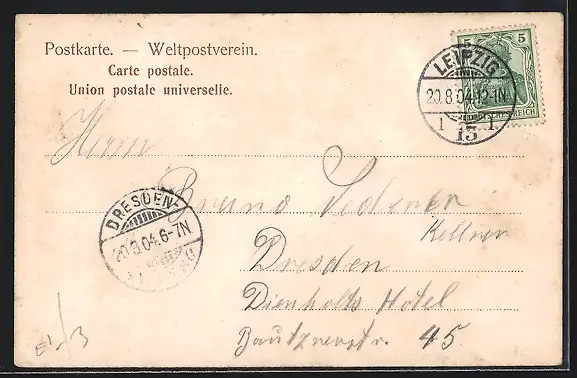 Postkarte. — Weltpostverein.
Carte postale.
Union postale universelle.
5 5
DEUTSCHES REICH
LEIPZIG
20.8.04.12-1N
1 13 1
Herrn
Bruno
Kellner
Dresden
Dienholts Hotel
Bautznerstr. 45
DRESDEN-
20.8.04.6-7N